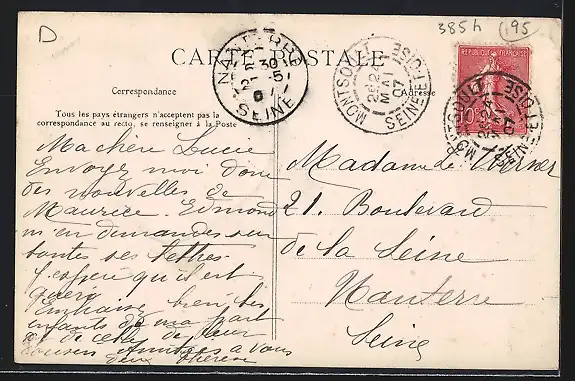 D
385h
195
CARTE POSTALE
NANTERRE
30
-5
SEINE
MONTSOULT
MAI
07
SEINE ET OISE
RÉPUBLIQUE FRANÇAISE
10
Correspondance
Adresse
Tous les pays étrangers n'acceptent pas la
correspondance au recto, se renseigner à la Poste
Ma chère Lucie
Envoyez moi donc
des nouvelles de
Maurice. Edmond
m'en demandes sur
toutes ses lettres
J'espère qu'il est
guéri
Embrasse bien les
enfants de ma part
et de celle de leur
cousin Amitiés à vous
Thérèse
Madame
21. Boulevard
de la Seine
Nanterre
Seine